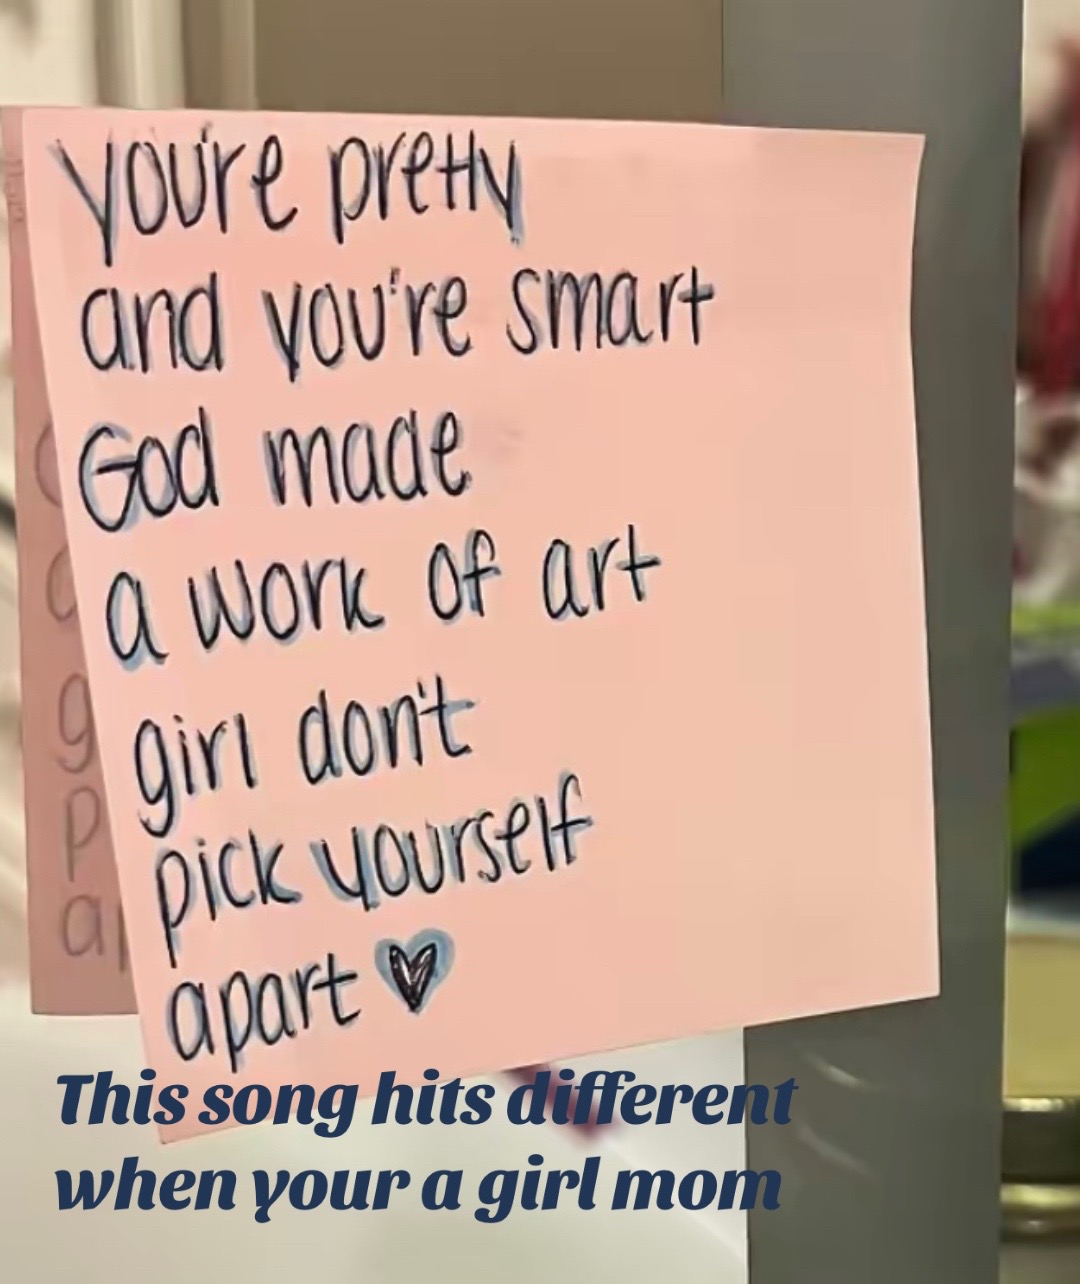 you're pretty
and you're smart
God made
a work of art
girl don't
pick yourself
apart
This song hits different
when your a girl mom